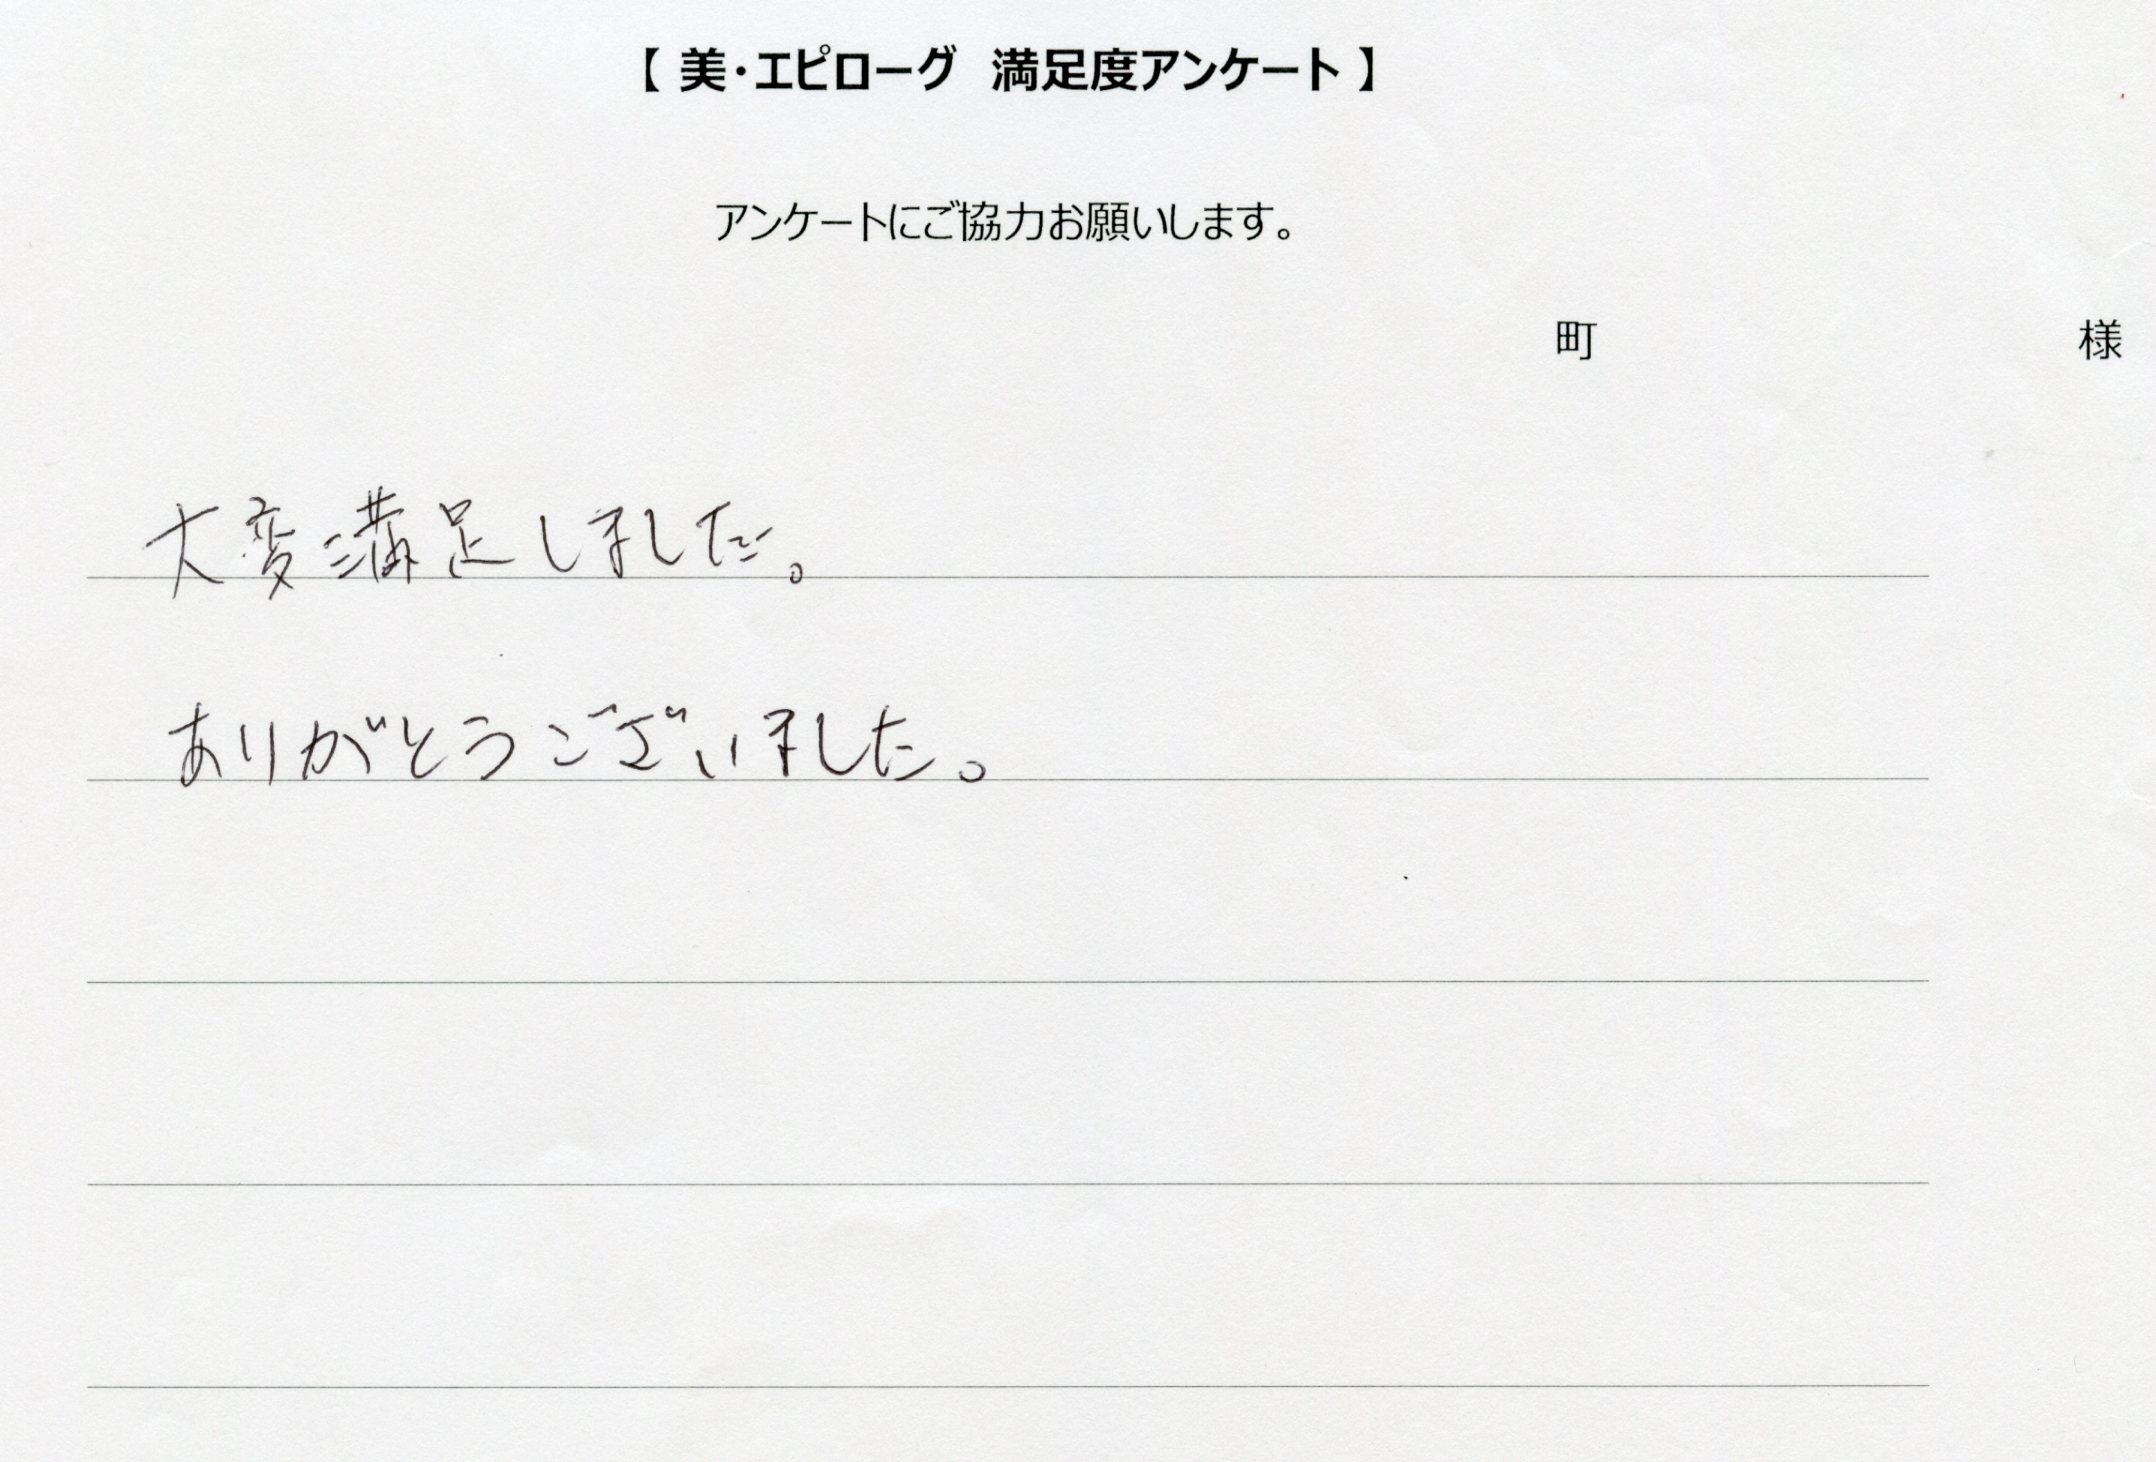 【 美・エピローグ 満足度アンケート 】
アンケートにご協力お願いします。
町 様
大変満足しました。
ありがとうございました。